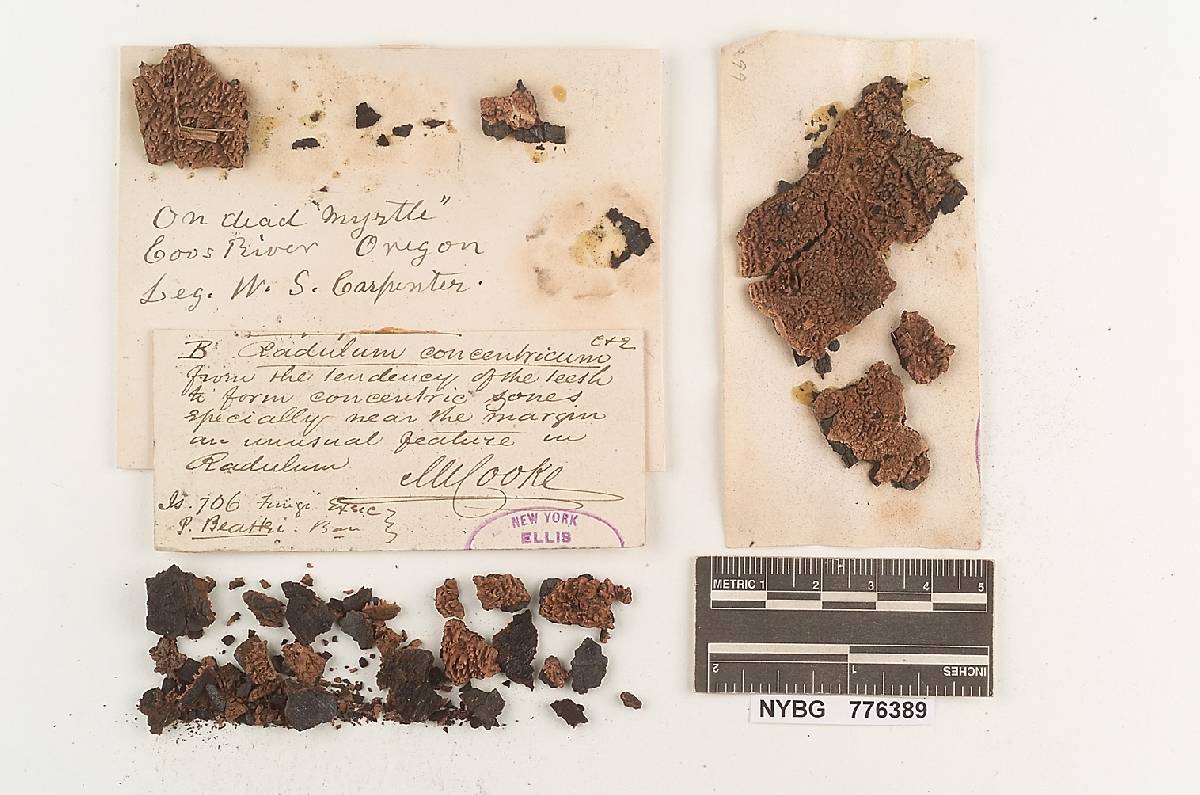 On dead "myrtle"
Coos River Oregon
Leg. W. S. Carpenter.
B Radulum concentricum C & E
from the tendency of the teeth
to form concentric zones
specially near the margin
an unusual feature in
Radulum
M C Cooke
Is. 706 Fungi Exsic
P. Beattii. Rav
NEW YORK
ELLIS
METRIC 1 2 3 4 5
2 1 INCHES
NYBG 776389